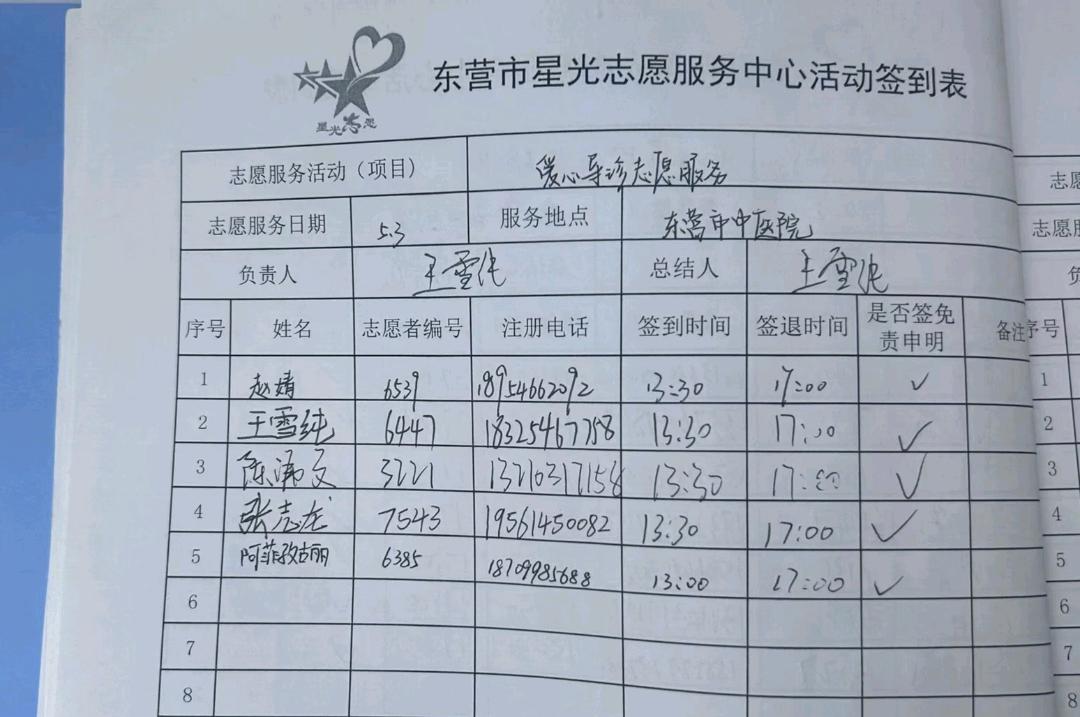 星光志愿
东营市星光志愿服务中心活动签到表
志愿服务活动（项目） 爱心导诊志愿服务
志愿服务日期 5.3 服务地点 东营市中医院
负责人 王雪纯 总结人 王雪纯
序号 姓名 志愿者编号 注册电话 签到时间 签退时间 是否签免责申明 备注
1 赵婧 6539 18954662092 13:30 17:00 ✓
2 王雪纯 6447 18325467758 13:30 17:00 ✓
3 陈 文 3221 13210317158 13:30 17:00 ✓
4 张志龙 7543 19561450082 13:30 17:00 ✓
5 阿菲孜古丽 6385 18709985688 13:00 17:00 ✓
6
7
8
志愿
志愿服
负
序号
1
2
3
4
5
6
7
8